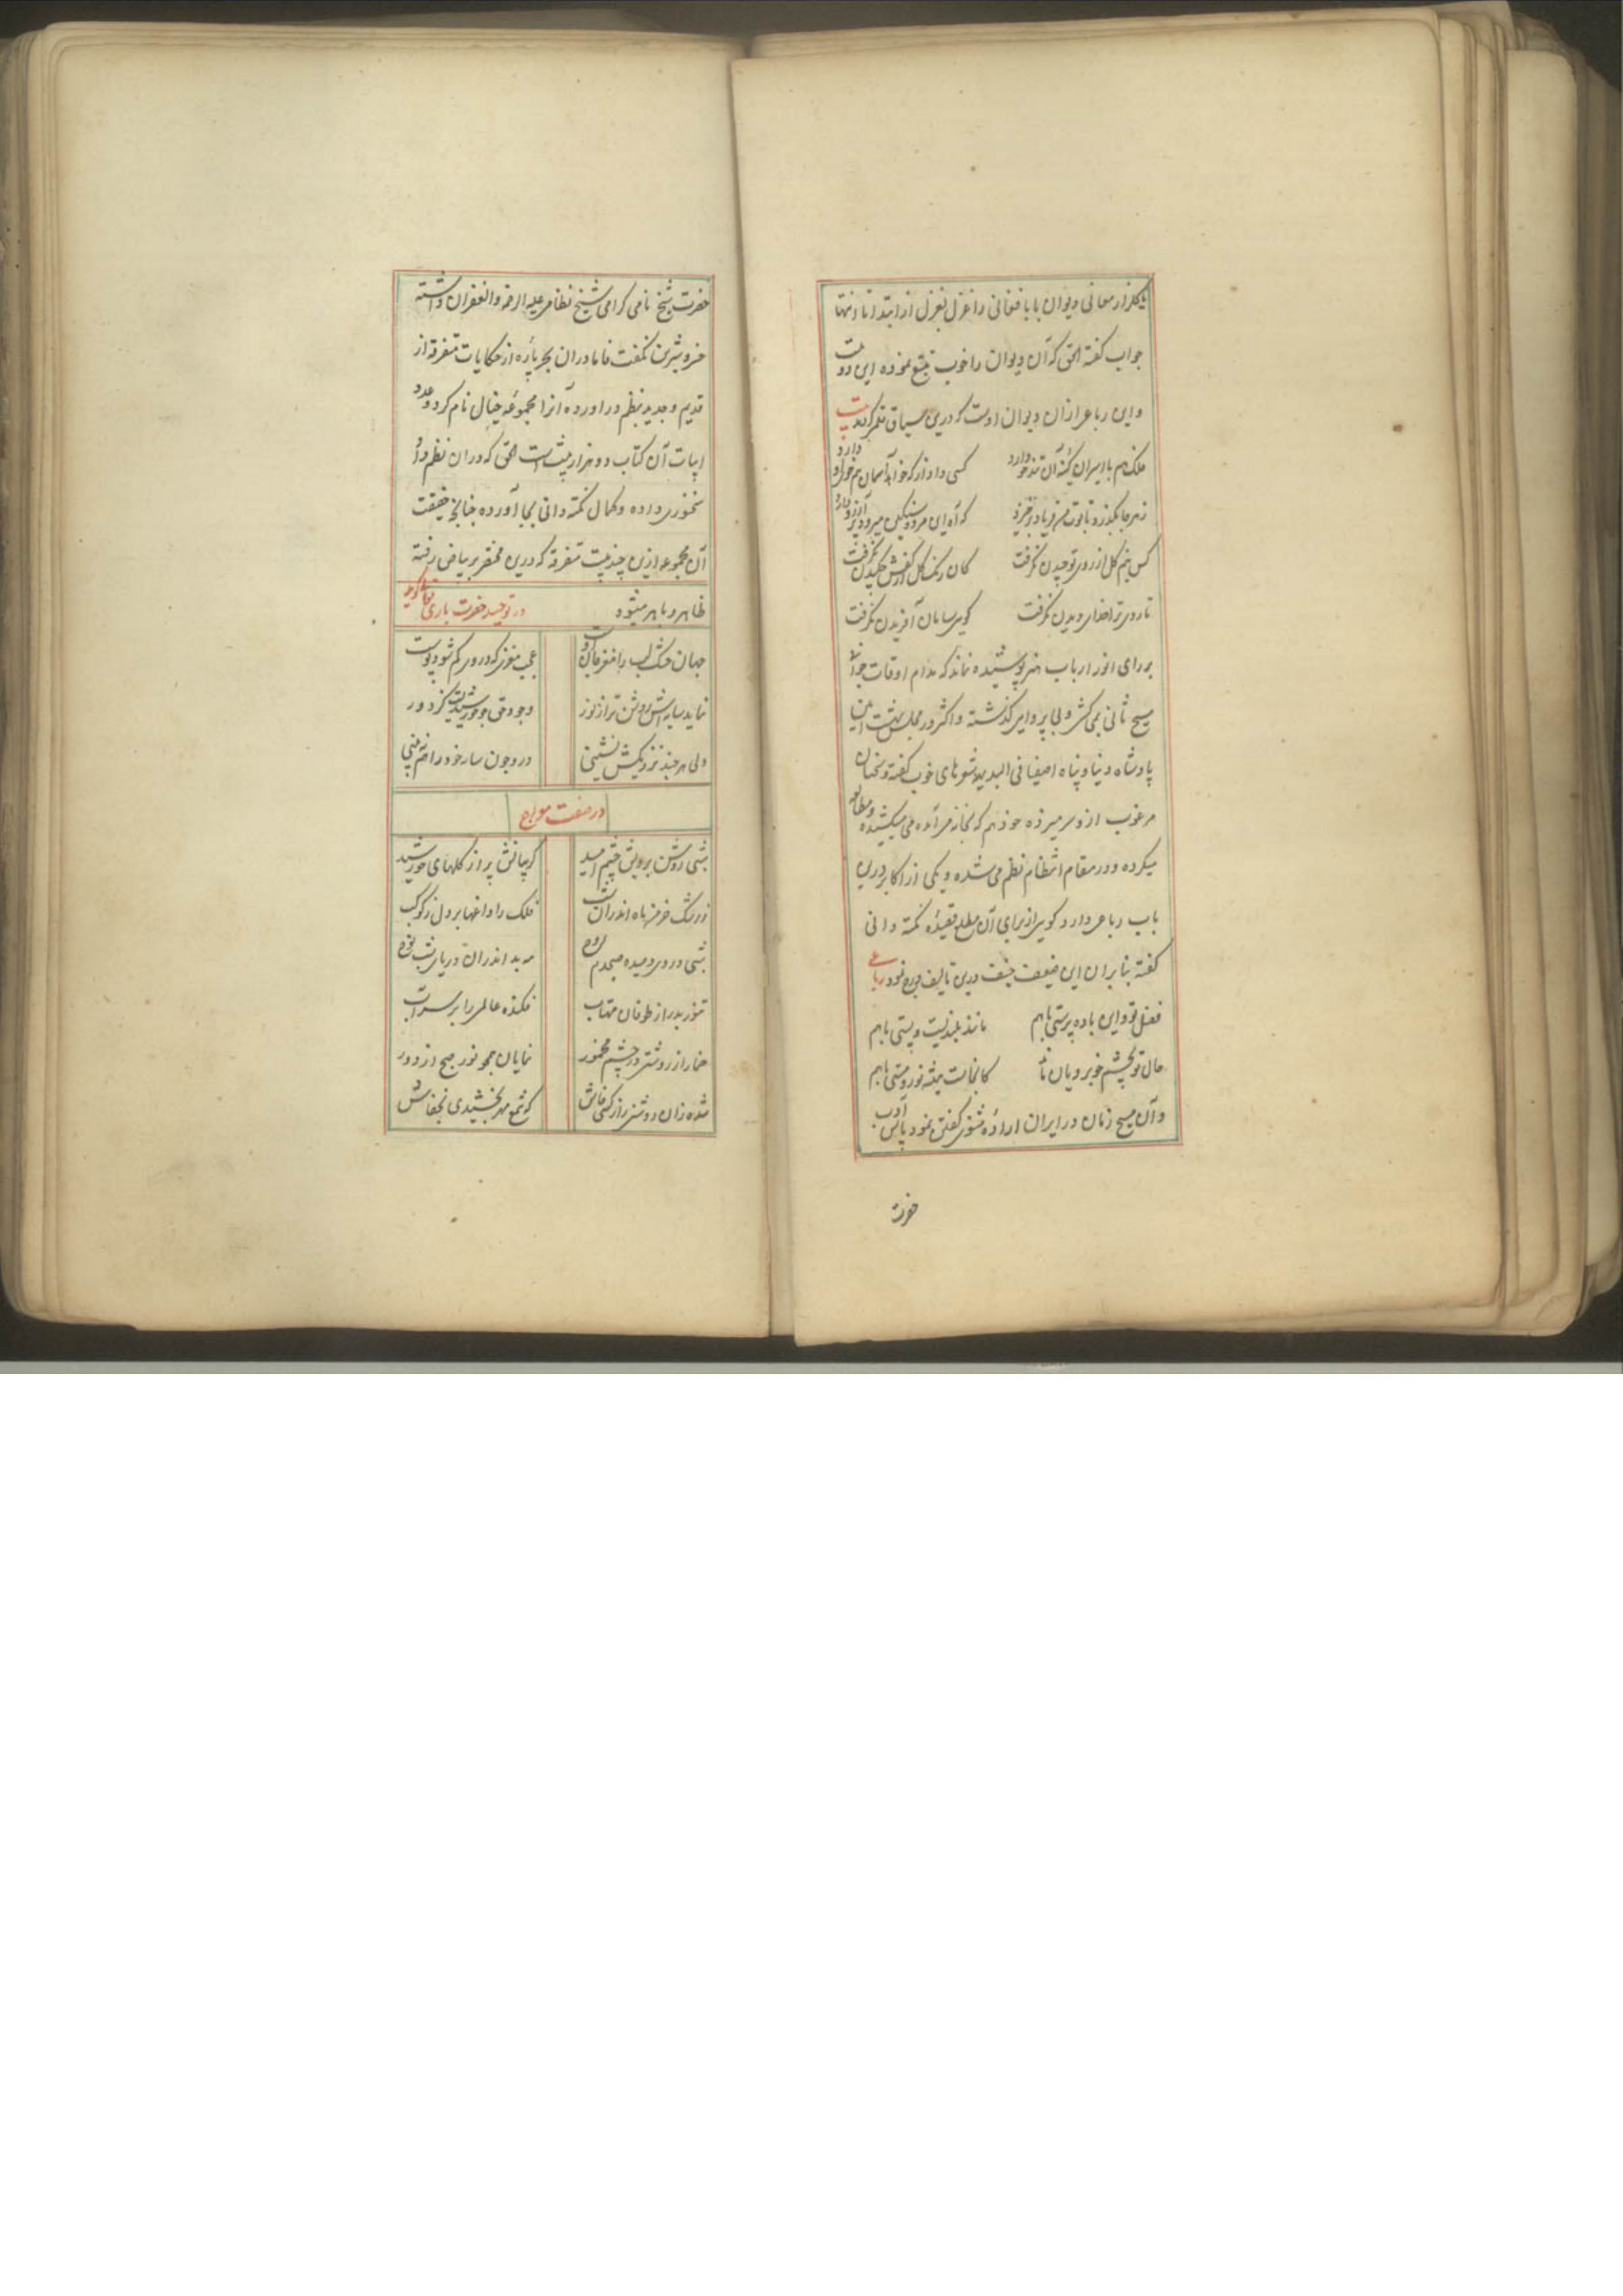 معانی دیوان بابا فغانی را غزل بغزل از ابتدا تا انتها
جواب گفته الحق که آن دیوان را خوب تتبع نموده این دو بیت
و این رباعی از آن دیوان اوست که درین سیاق
ملک هم با اسیران کینهٔ آن تندخو دارد
کسی داد از که خواهد آسمان هم خوی او دارد
ز هر جا بگذرد تابوت من فریاد برخیزد
که آه این مرده سنگین میرود پر آرزو دارد
کس گل از روی تو چیدن نگرفت
کان رنگ گل از چکیدن نگرفت
تا روی ترا خدای دیدن نگرفت
گویی سامان آفریدن نگرفت
بر رای انور ارباب هنر پوشیده نماند که مدام اوقات
مسیح ثانی بمی کشی و بی پروایی گذشته و اکثر در مجلس بهشت آیین
پادشاه دنیا و پناه اصفیا فی البدیهه شعرهای خوب گفته و سخنان
مرغوب ازو سر میزده خود هم که بخانه می آمده می میکشیده و مطالعه
میکرده و در مقام انتظام نظم می شده و یکی از اکابر درین
باب رباعی دارد گویی از برای آن نکته دانی
گفته بنابران این ضعیف درین تالیف نمود رباعی
فضل تو و این باده پرستی باهم
مانند بلندیست و پستی باهم
حال تو بچشم خوبرویان ماند
کانجاست همیشه نور و مستی باهم
و آن مسیح زمان در ایران ارادهٔ مثنوی گفتن نمود پاس ادب
حضرت
حضرت شیخ نامی گرامی شیخ نظامی علیه الرحمة و الغفران داشته
خسرو شیرین نگفت فاما در آن بحر پاره از حکایات متفرقه از
قدیم و جدید بنظم در آورده آنرا مجموعهٔ خیال نام کرد و عدد
ابیات آن کتاب دو هزار بیت است الحق که در آن نظم داد
سخنوری داده و کمال نکته دانی بجا آورده چنانچه حقیقت
آن مجموعه ازین چند بیت متفرقه که درین مختصر بر بیاض رفته
ظاهر و باهر میشود در توحید حضرت باری تعالی گوید
جهان خشک لب را مغز جان اوست
عجب مغزی که در وی گم شود پوست
نماید سایه اش روشن تر از نور
وجود حق چو خورشیدیست کز دور
ولی هر چند نزدیکش نشینی
درو چون سایه خود را هم نبینی
در صفت معراج
شبی روشن برویش چشم امید
گریبانش پر از گلهای خورشید
ز رشک خرمن ماه اندران شب
فلک را داغها بر دل ز کوکب
شبی در وی دمیده صبحدم روح
مه بد اندران دریای شب نوح
تنور بدر از طوفان مهتاب
فکنده عالمی را بر سر آب
خمار از روشنی در چشم مخمور
نمایان همچو نور صبح از دور
شده زان روشنی راز کسی فاش
که شمع مهر بخشیدی بخفاش